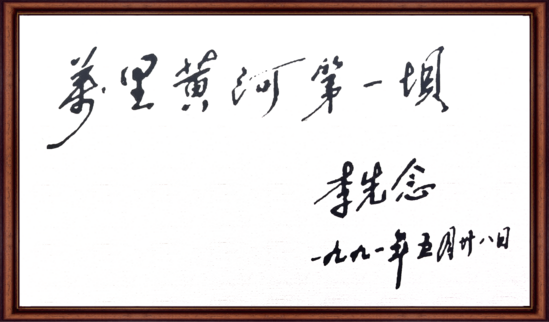 萬里黄河第一坝
李先念
一九九一年五月廿八日